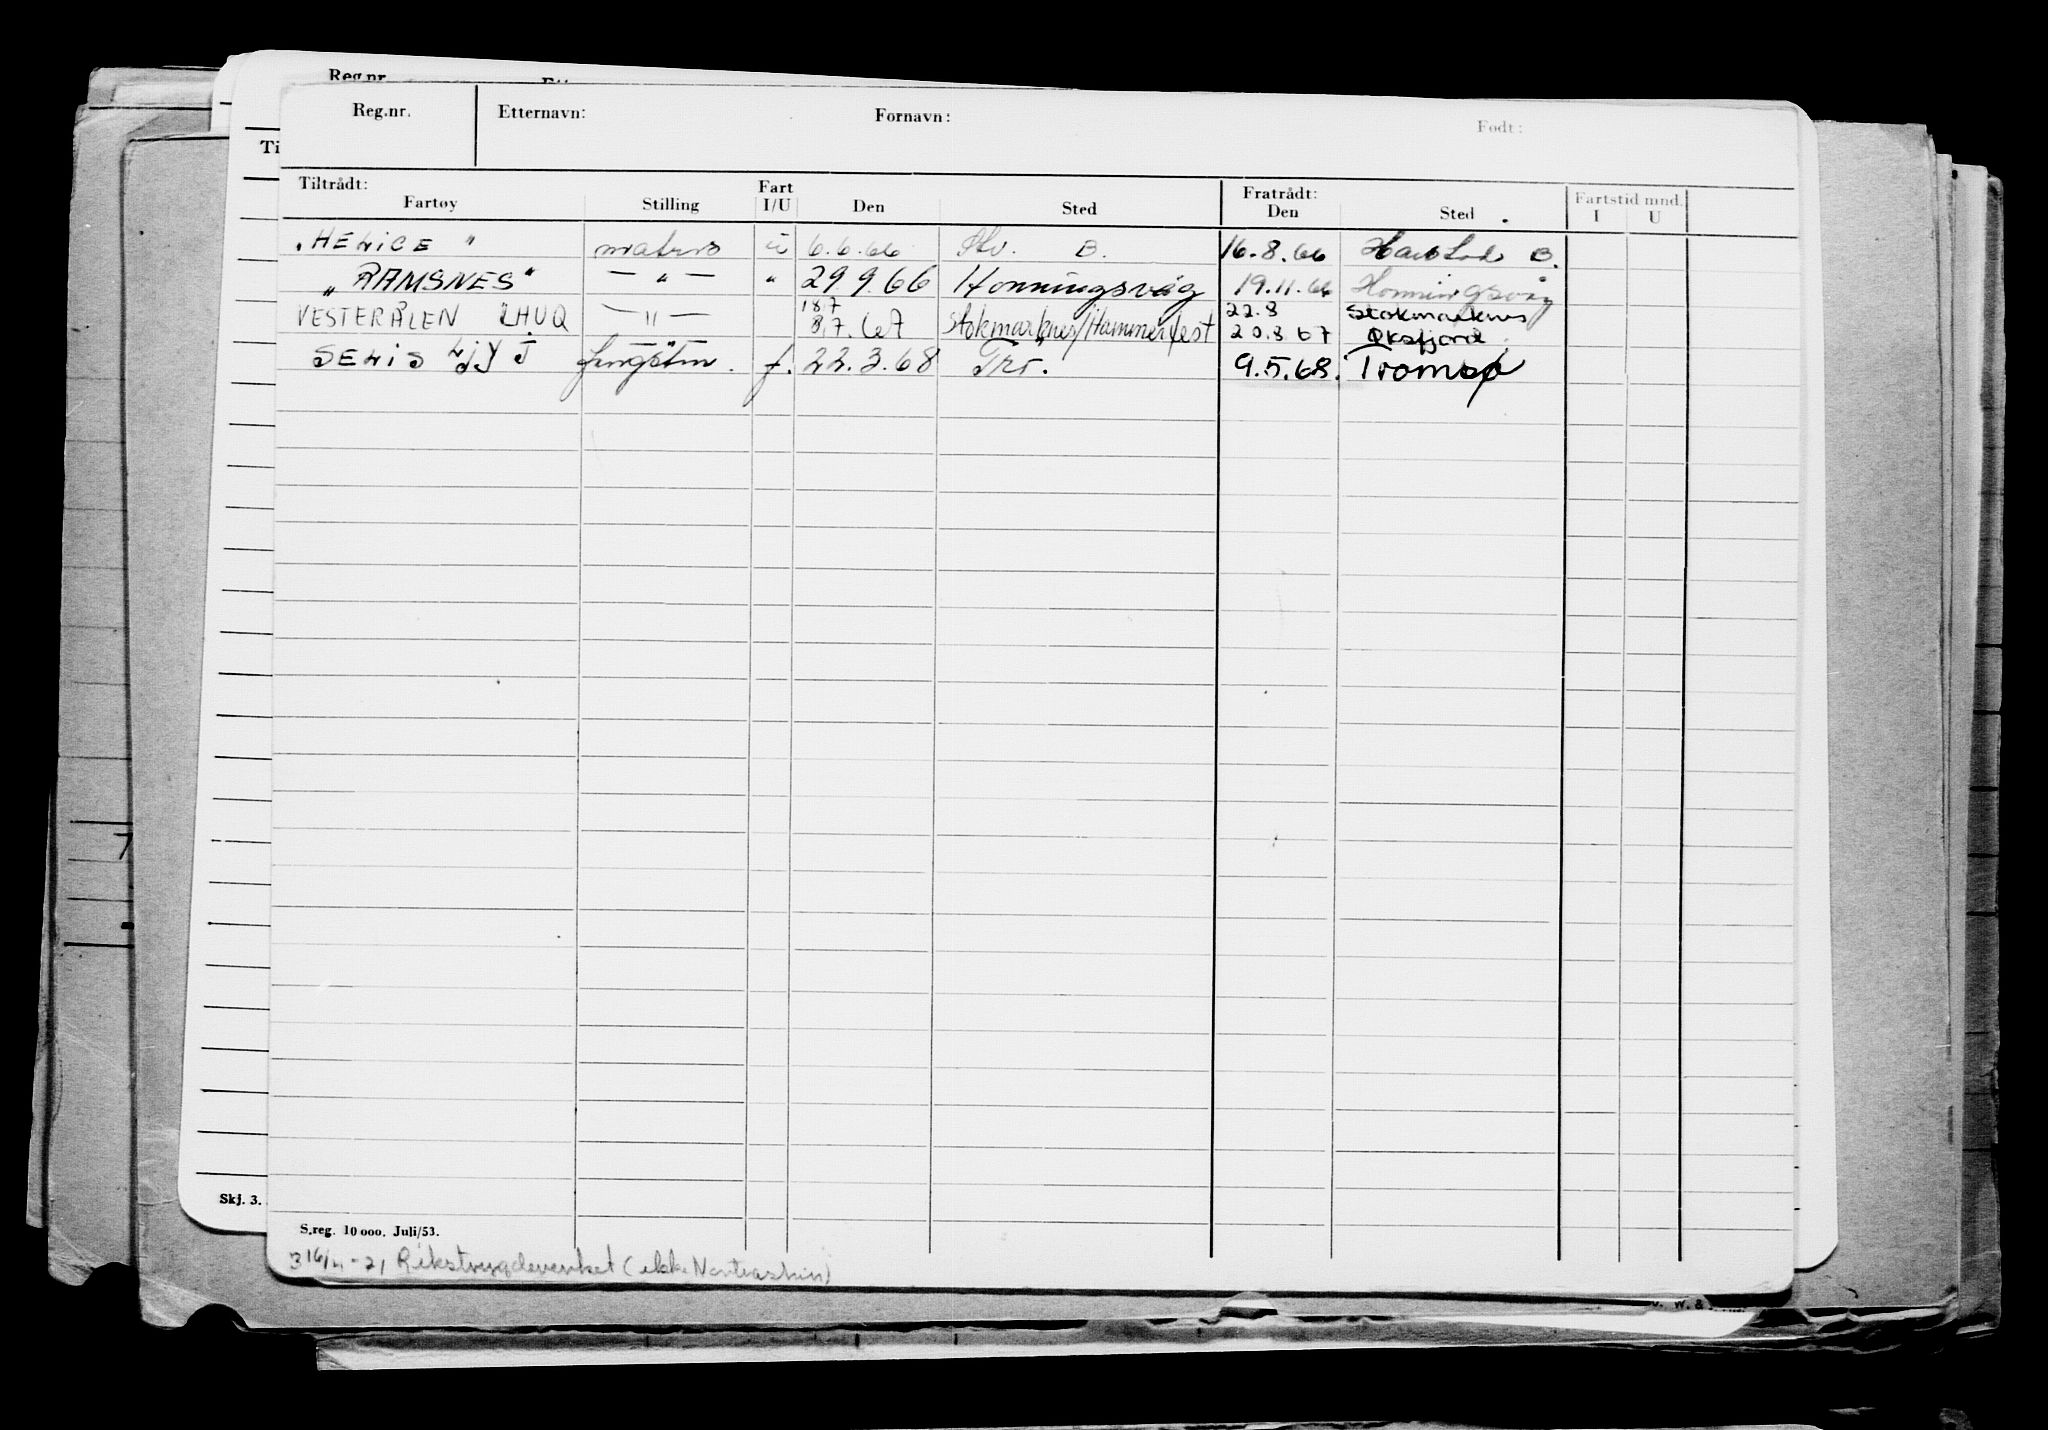 Reg.nr.
Reg.nr. Etternavn: Fornavn: Født:
Ti
Tiltrådt: Fartøy Stilling Fart I/U Den Sted Fratrådt: Den Sted Fartstid mnd. I U
"HELICE" matros u 6.6.66 B. 16.8.66 Harstad B.
"RAMSNES" — " — " 29 9.66 Honningsvåg 19.11.66 Honningsvåg
VESTERÅLEN LHUQ — " — 18.7 22.8 Stokmarknes
8.7.67 Stokmarknes/Hammerfest 20.8 67 Øksfjord
SELIS LJYJ f. 22.3.68 Trs. 9.5.68. Tromsø
7
Skj. 3.
S.reg. 10 000. Juli/53.
Rikstrygdeverket (ikke Nortraship)